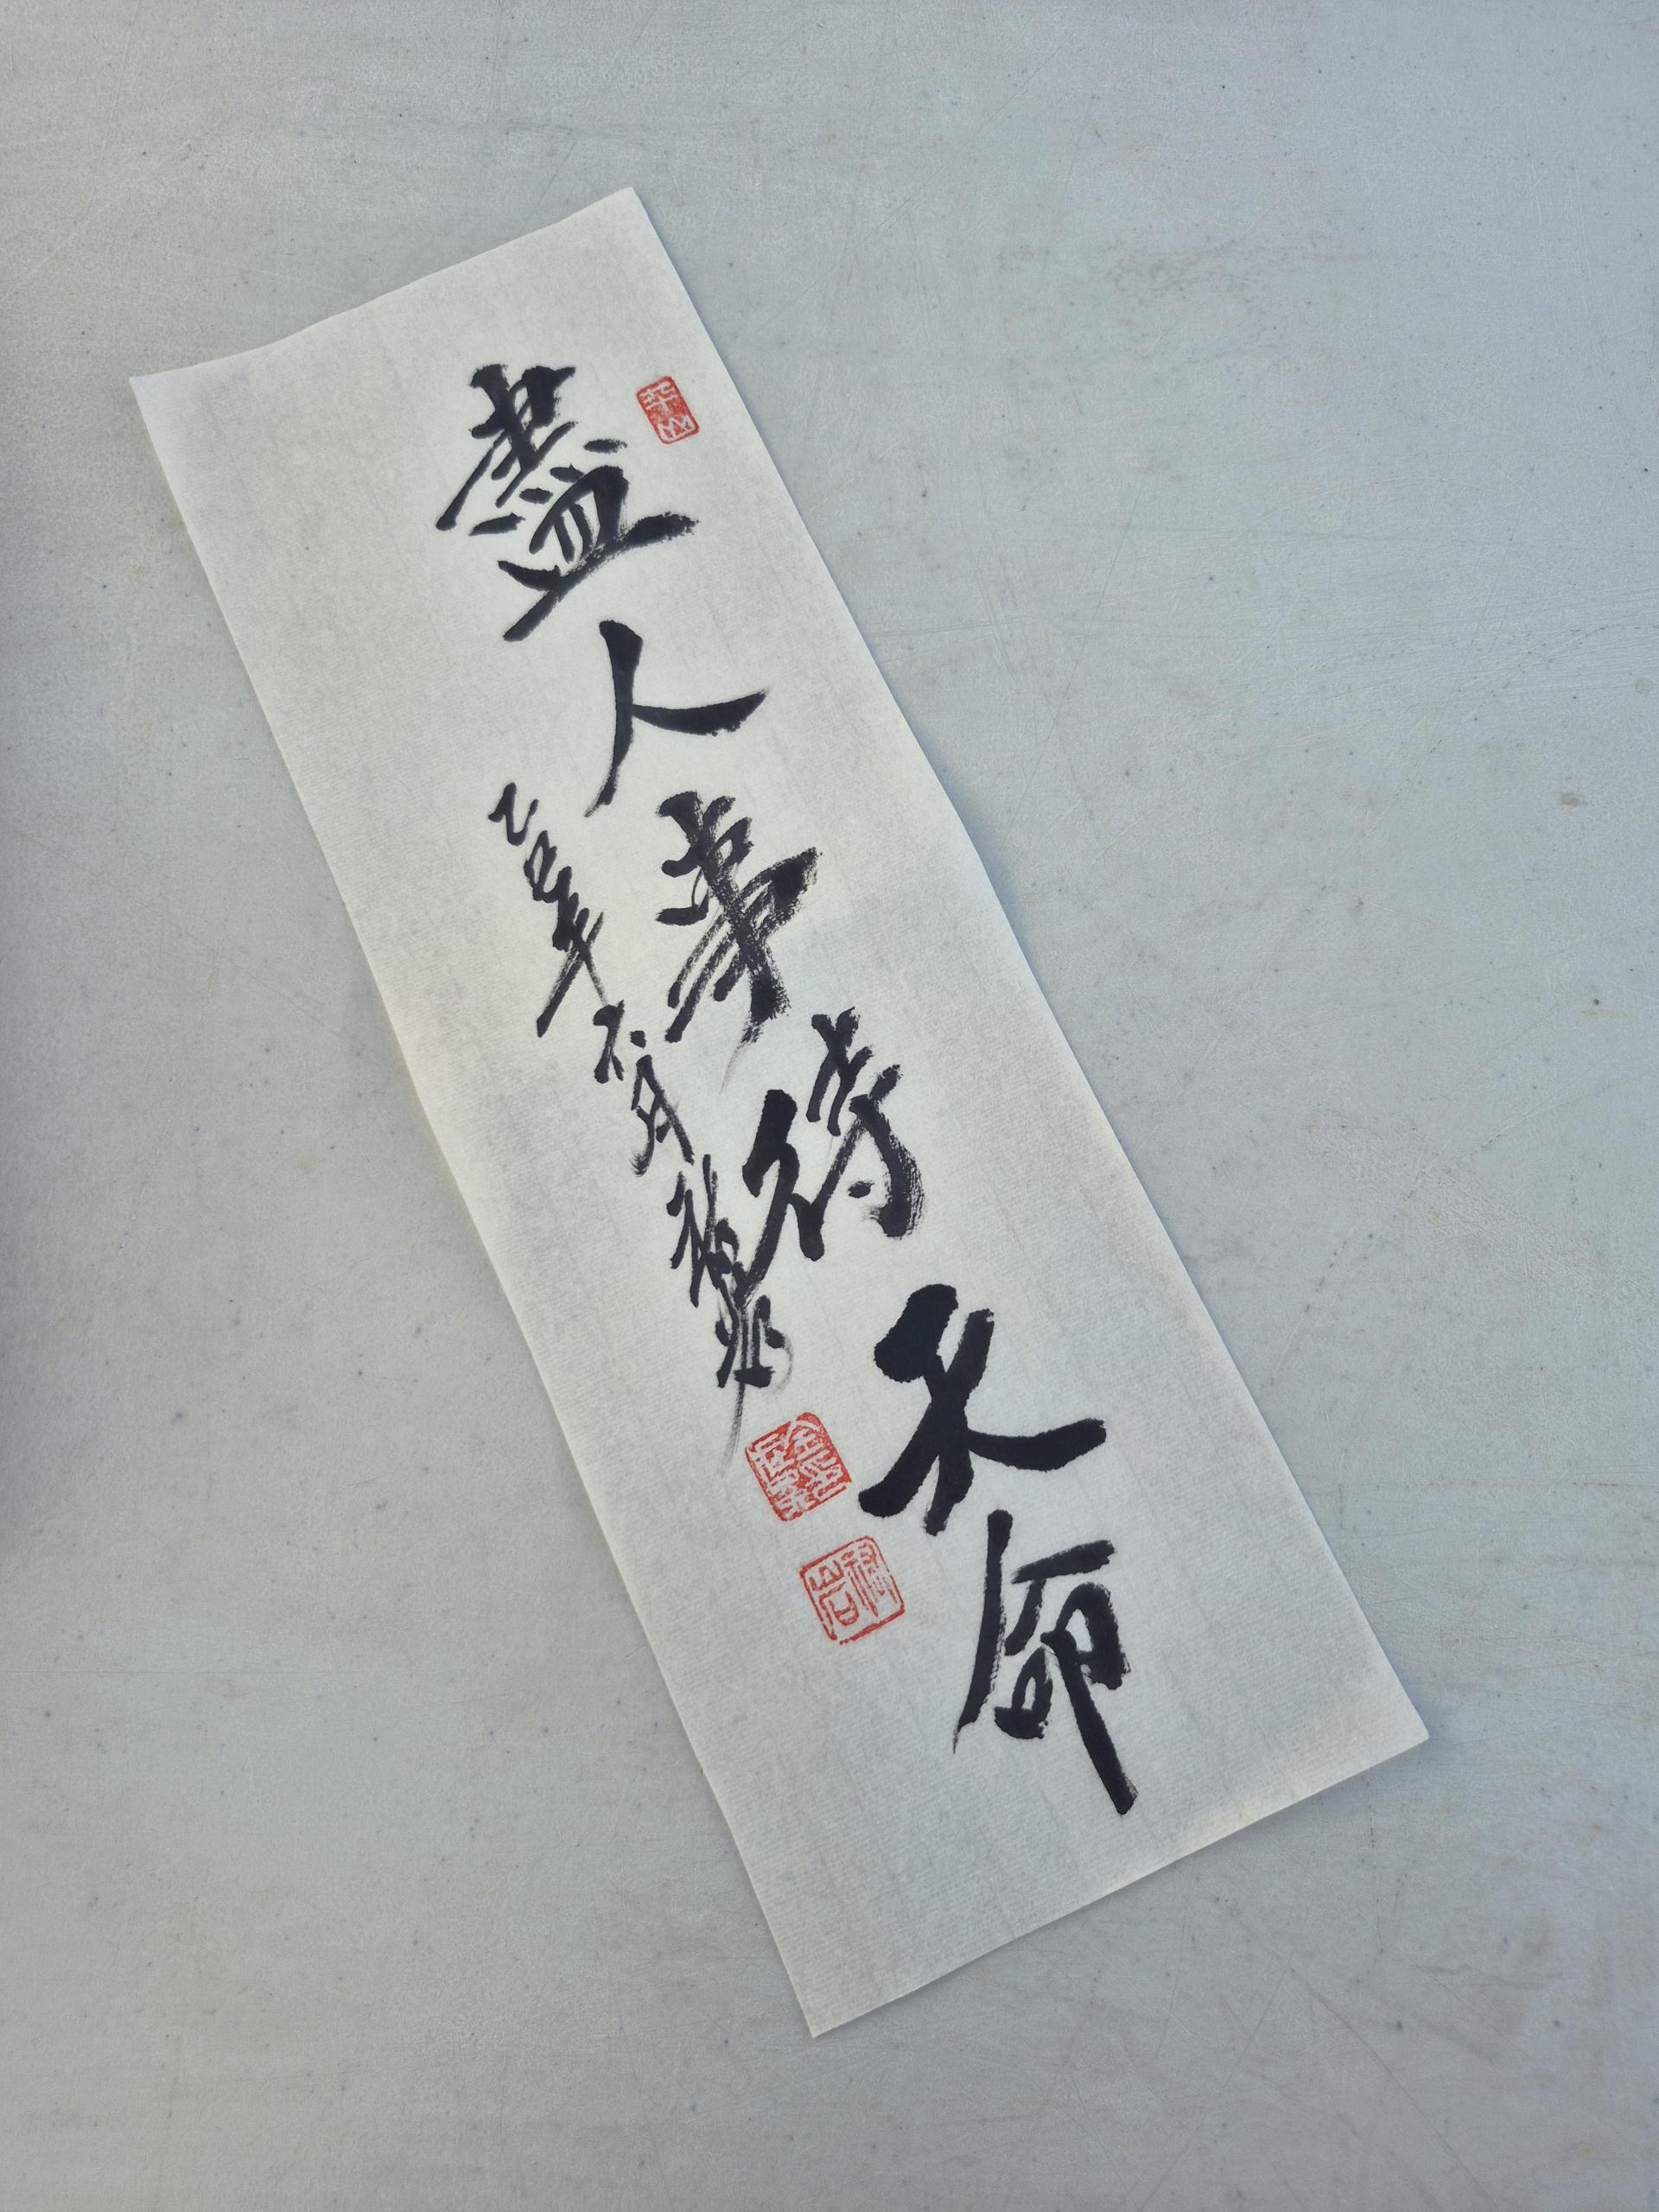 盡人事待天命
乙巳年六月